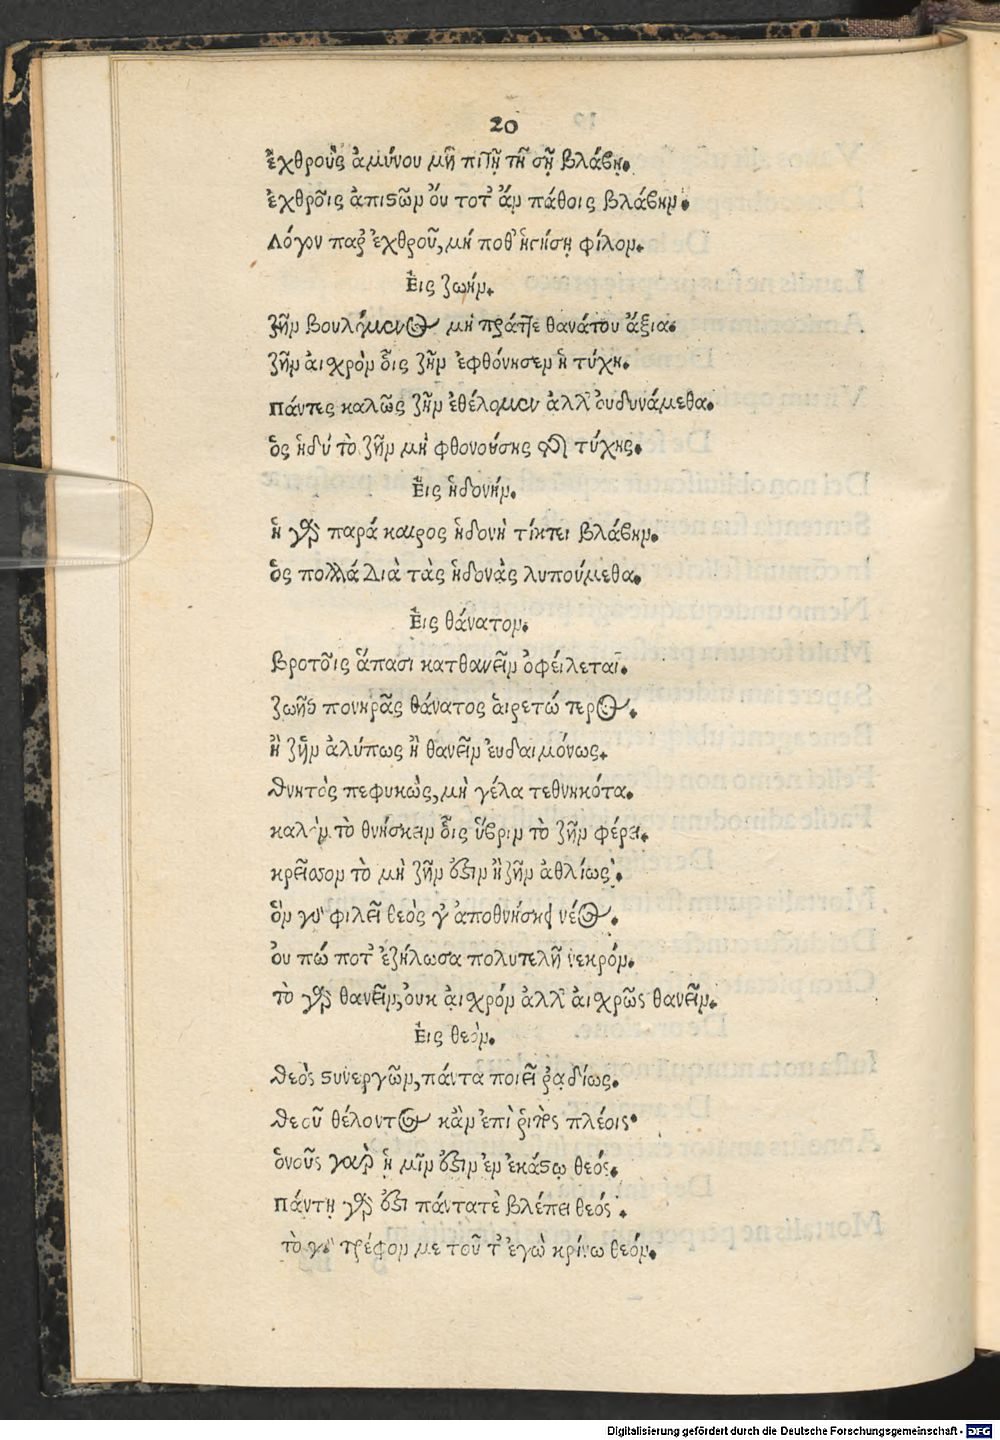 20
ἐχθροὺς ἀμύνου μὴ πὶ τῇ τῇ σῇ βλάβῃ.
ἐχθροῖς ἀπιστῶν ὄυ ποτ' ἂν πάθοις βλάβην.
Λόγον παρ' ἐχθροῦ, μή ποθ' ἡγήσῃ φίλον.
Ἐις ζωήν.
ζῆν βουλόμενος μὴ πράττε θανάτου ἄξια.
ζῆν ἀισχρὸν ὅις ζῆν ἐφθόνησεν ἡ τύχη.
πάντες καλῶς ζῆν ἐθέλομεν ἀλλ' ὀυ δυνάμεθα.
ὅς ἡδύ τὸ ζῆν μὴ φθονούσης τύχης.
Ἐις ἡδονήν.
ἡ γὰρ παρά καιρος ἡδονὴ τίκτει βλάβην.
ὅς πολλά Διὰ τὰς ἡδονὰς λυπούμεθα.
Ἐις θάνατον.
βροτοῖς ἅπασι κατθανεῖν ὀφείλεται.
ζωῆς πονηρᾶς θάνατος ἁιρετώτερος.
ἢ ζῆν ἀλύπως ἢ θανεῖν ἐυδαιμόνως.
θνητὸς πεφυκὼς, μὴ γέλα τεθνηκότα.
καλὸν τὸ θνήσκειν ὅις ὕβριν τὸ ζῆν φέρει.
κρεῖσσον τὸ μὴ ζῆν ἐστιν ἢ ζῆν ἀθλίως.
ὃν γὰρ φιλεῖ θεὸς γ' ἀποθνήσκει νέος.
ὀυ πώ ποτ' ἐζήλωσα πολυτελῆ νεκρόν.
τὸ γὰρ θανεῖν, ὀυκ ἀισχρόν ἀλλ' ἀισχρῶς θανεῖν.
Ἐις θεὸν.
θεὸς συνεργῶν, πάντα ποιεῖ ῥαδίως.
θεοῦ θέλοντος κἂν ἐπὶ ῥιπὸς πλέοις.
ὁ νοῦς γὰρ ἡμῖν ἐστιν ἐν ἑκάστῳ θεός.
πάντῃ γὰρ ἐστι πάντα τὲ βλέπει θεός.
τὸ γὰρ τρέφον με τοῦτ' ἐγὼ κρίνω θεόν.
Digitalisierung gefördert durch die Deutsche Forschungsgemeinschaft - DFG